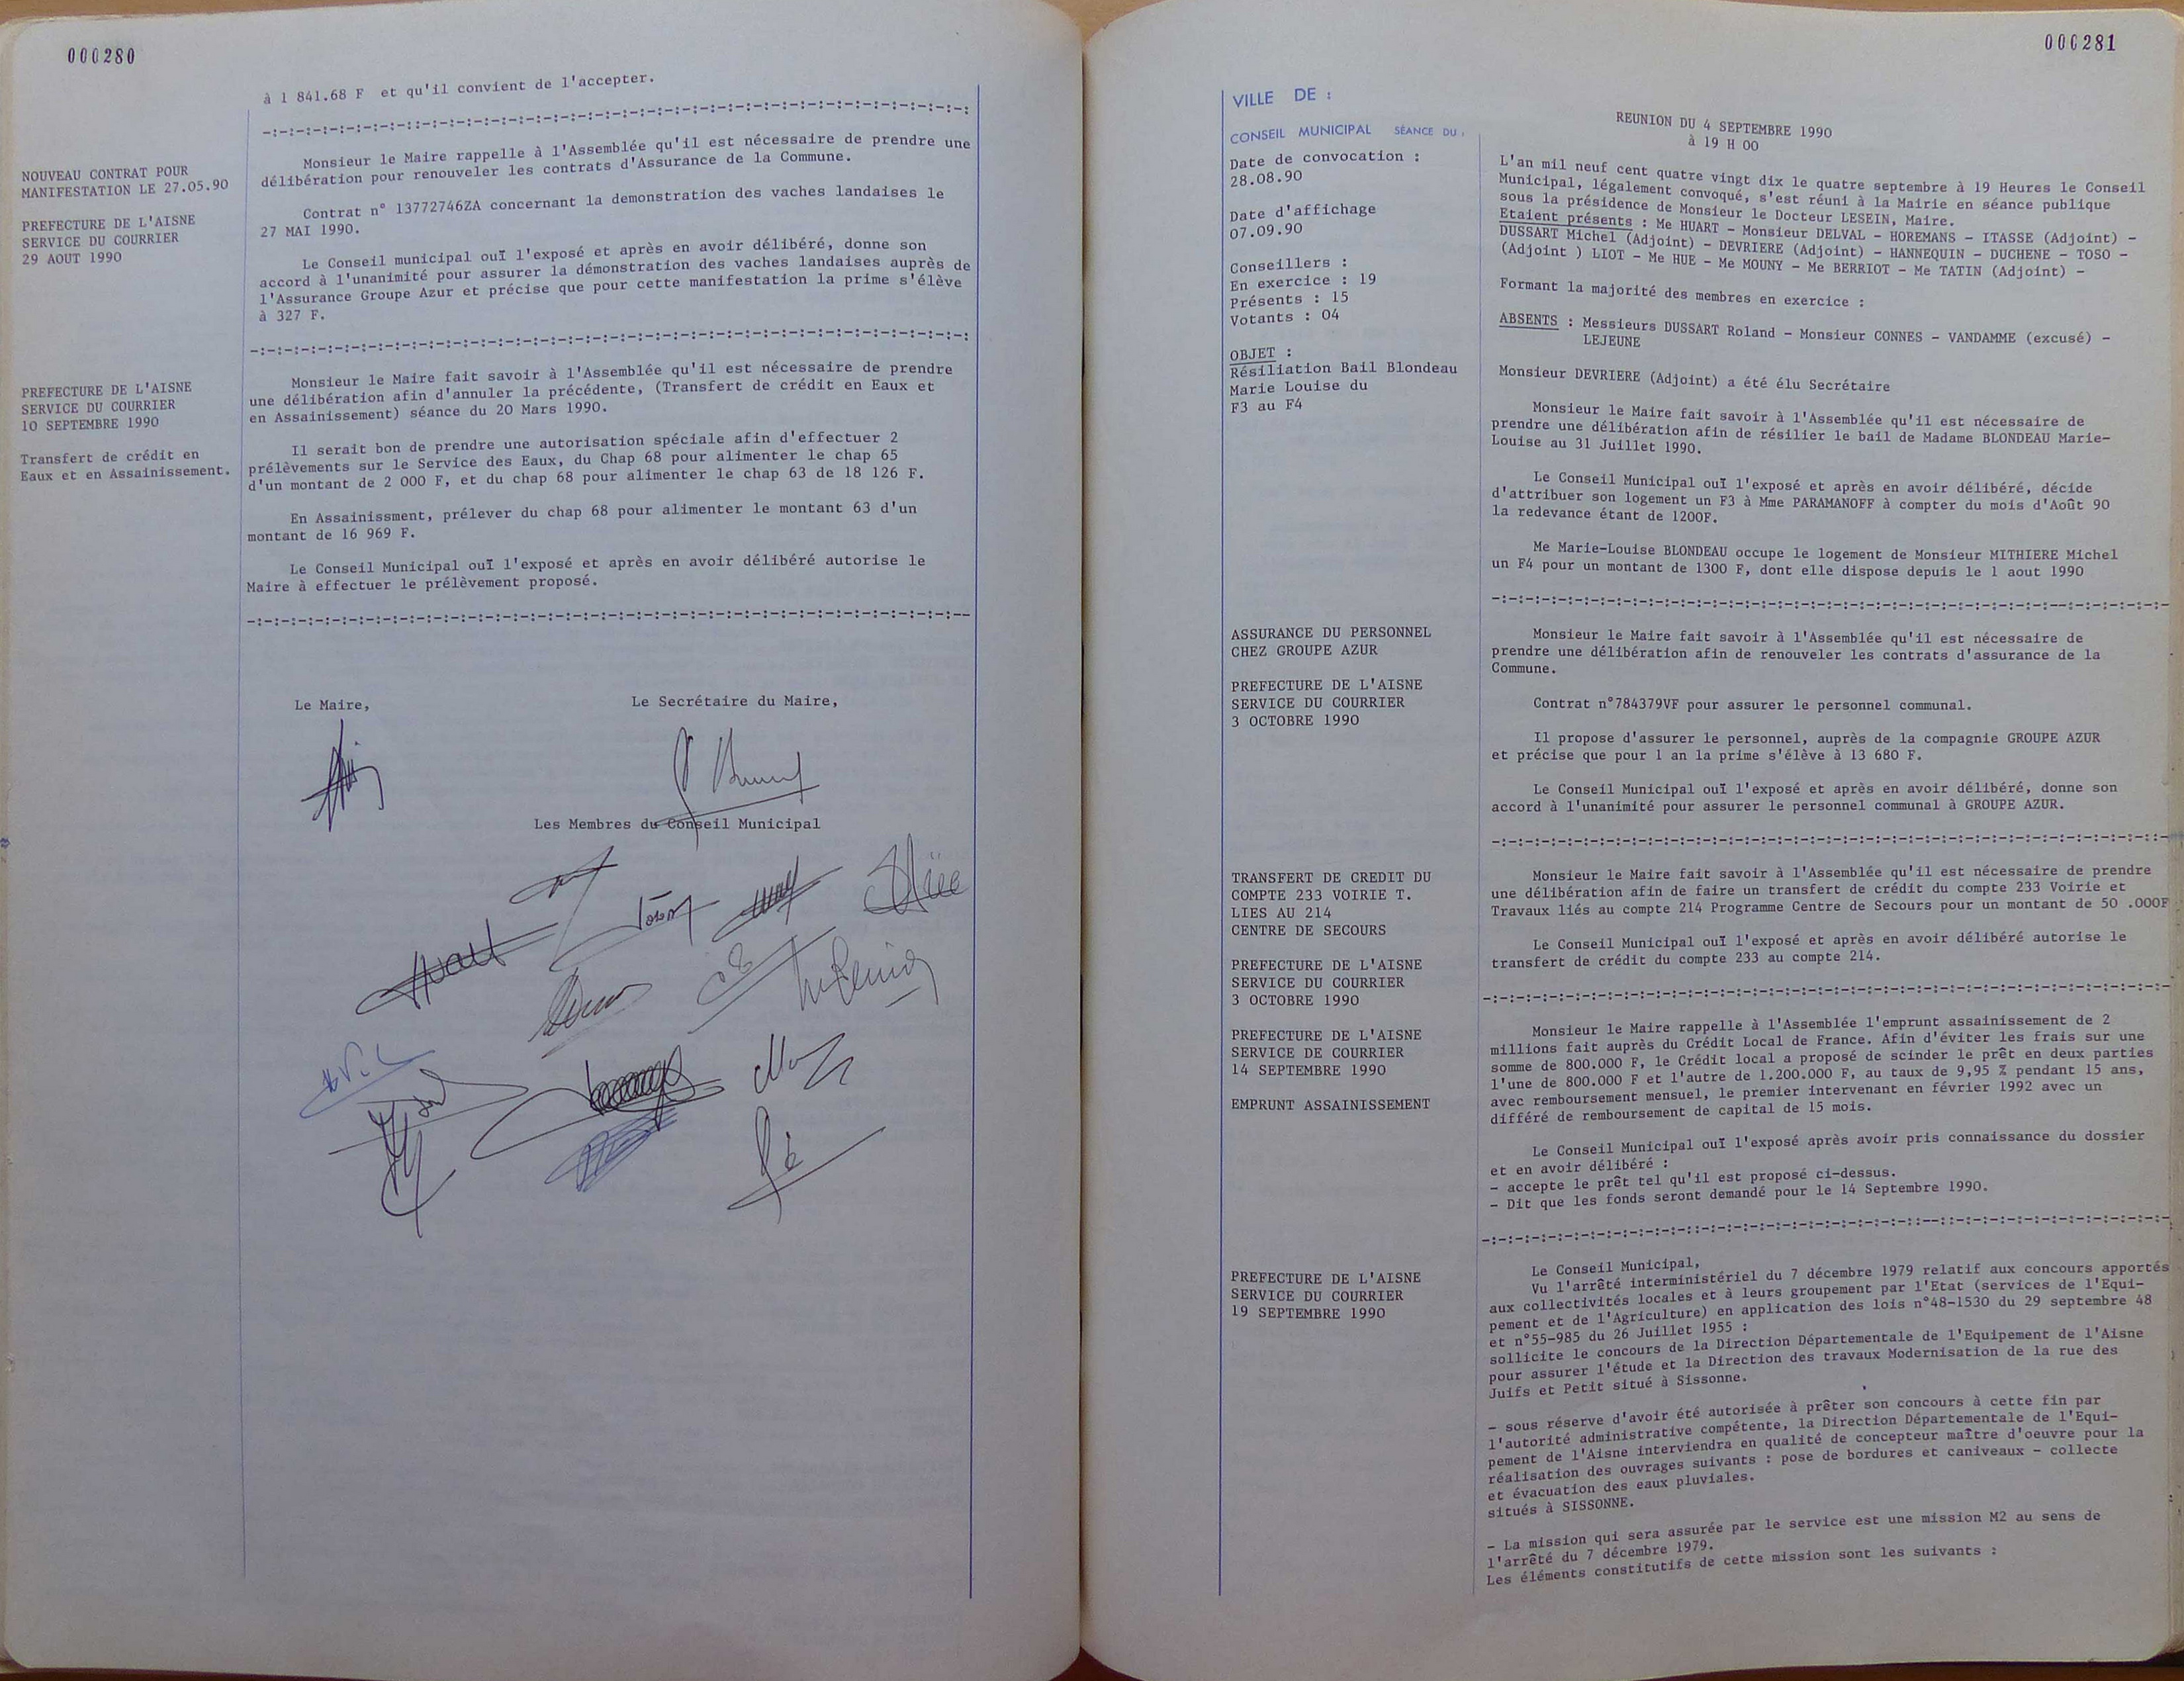 000280
à 1 841.68 F  et qu'il convient de l'accepter.
-:-:-:-:-:-:-:-::-:-:-:-:-:-:-:-:-:-:-:-:-:-:-:-:-:-:-:-:-:-:-:-:-:-:-:
NOUVEAU CONTRAT POUR
MANIFESTATION LE 27.05.90
PREFECTURE DE L'AISNE
SERVICE DU COURRIER
29 AOUT 1990
Monsieur le Maire rappelle à l'Assemblée qu'il est nécessaire de prendre une
délibération pour renouveler les contrats d'Assurance de la Commune.
Contrat n° 13772746ZA concernant la demonstration des vaches landaises le
27 MAI 1990.
Le Conseil municipal ouI l'exposé et après en avoir délibéré, donne son
accord à l'unanimité pour assurer la démonstration des vaches landaises auprès de
l'Assurance Groupe Azur et précise que pour cette manifestation la prime s'élève
à 327 F.
-:-:-:-:-:-:-:-:-:-:-:-:-:-:-:-:-:-:-:-:-:-:-:-:-:-:-:-:-:-:-:-:-:-:-:-:
PREFECTURE DE L'AISNE
SERVICE DU COURRIER
10 SEPTEMBRE 1990
Transfert de crédit en
Eaux et en Assainissement.
Monsieur le Maire fait savoir à l'Assemblée qu'il est nécessaire de prendre
une délibération afin d'annuler la précédente, (Transfert de crédit en Eaux et
en Assainissement) séance du 20 Mars 1990.
Il serait bon de prendre une autorisation spéciale afin d'effectuer 2
prélèvements sur le Service des Eaux, du Chap 68 pour alimenter le chap 65
d'un montant de 2 000 F, et du chap 68 pour alimenter le chap 63 de 18 126 F.
En Assainissment, prélever du chap 68 pour alimenter le montant 63 d'un
montant de 16 969 F.
Le Conseil Municipal ouI l'exposé et après en avoir délibéré autorise le
Maire à effectuer le prélèvement proposé.
-:-:-:-:-:-:-:-:-:-:-:-:-:-:-:-:-:-:-:-:-:-:-:-:-:-:-:-:-:-:-:-:-:-:-:--
Le Maire,
Le Secrétaire du Maire,
Les Membres du Conseil Municipal
000281
VILLE DE :
CONSEIL MUNICIPAL SÉANCE DU :
Date de convocation :
28.08.90
Date d'affichage
07.09.90
Conseillers :
En exercice : 19
Présents : 15
Votants : 04
OBJET :
Résiliation Bail Blondeau
Marie Louise du
F3 au F4
REUNION DU 4 SEPTEMBRE 1990
à 19 H 00
L'an mil neuf cent quatre vingt dix le quatre septembre à 19 Heures le Conseil
Municipal, légalement convoqué, s'est réuni à la Mairie en séance publique
sous la présidence de Monsieur le Docteur LESEIN, Maire.
Etaient présents : Me HUART - Monsieur DELVAL - HOREMANS - ITASSE (Adjoint) -
DUSSART Michel (Adjoint) - DEVRIERE (Adjoint) - HANNEQUIN - DUCHENE - TOSO -
(Adjoint ) LIOT - Me HUE - Me MOUNY - Me BERRIOT - Me TATIN (Adjoint) -
Formant la majorité des membres en exercice :
ABSENTS : Messieurs DUSSART Roland - Monsieur CONNES - VANDAMME (excusé) -
LEJEUNE
Monsieur DEVRIERE (Adjoint) a été élu Secrétaire
Monsieur le Maire fait savoir à l'Assemblée qu'il est nécessaire de
prendre une délibération afin de résilier le bail de Madame BLONDEAU Marie-
Louise au 31 Juillet 1990.
Le Conseil Municipal ouI l'exposé et après en avoir délibéré, décide
d'attribuer son logement un F3 à Mme PARAMANOFF à compter du mois d'Août 90
la redevance étant de 1200F.
Me Marie-Louise BLONDEAU occupe le logement de Monsieur MITHIERE Michel
un F4 pour un montant de 1300 F, dont elle dispose depuis le 1 aout 1990
-:-:-:-:-:-:-:-:-:-:-:-:-:-:-:-:-:-:-:-:-:-:-:-:-:-:-:-:-:-:-:-:-:--:-:-:-:-:-
ASSURANCE DU PERSONNEL
CHEZ GROUPE AZUR
PREFECTURE DE L'AISNE
SERVICE DU COURRIER
3 OCTOBRE 1990
Monsieur le Maire fait savoir à l'Assemblée qu'il est nécessaire de
prendre une délibération afin de renouveler les contrats d'assurance de la
Commune.
Contrat n°784379VF pour assurer le personnel communal.
Il propose d'assurer le personnel, auprès de la compagnie GROUPE AZUR
et précise que pour 1 an la prime s'élève à 13 680 F.
Le Conseil Municipal ouI l'exposé et après en avoir délibéré, donne son
accord à l'unanimité pour assurer le personnel communal à GROUPE AZUR.
-:-:-:-:-:-:-:-:-:-:-:-:-:-:-:-:-:-:-:-:-:-:-:-:-:-:-:-:-:-:-:-:-:-:-:-:-:-::-
TRANSFERT DE CREDIT DU
COMPTE 233 VOIRIE T.
LIES AU 214
CENTRE DE SECOURS
PREFECTURE DE L'AISNE
SERVICE DU COURRIER
3 OCTOBRE 1990
Monsieur le Maire fait savoir à l'Assemblée qu'il est nécessaire de prendre
une délibération afin de faire un transfert de crédit du compte 233 Voirie et
Travaux liés au compte 214 Programme Centre de Secours pour un montant de 50 .000F
Le Conseil Municipal ouI l'exposé et après en avoir délibéré autorise le
transfert de crédit du compte 233 au compte 214.
-:-:-:-:-:-:-:-:-:-:-:-:-:-:-:-:-:-:-:-:-:-:-:-:-:-:-:-:-:-:-:-:-:-:-:-:-:-:-
PREFECTURE DE L'AISNE
SERVICE DE COURRIER
14 SEPTEMBRE 1990
EMPRUNT ASSAINISSEMENT
Monsieur le Maire rappelle à l'Assemblée l'emprunt assainissement de 2
millions fait auprès du Crédit Local de France. Afin d'éviter les frais sur une
somme de 800.000 F, le Crédit local a proposé de scinder le prêt en deux parties
l'une de 800.000 F et l'autre de 1.200.000 F, au taux de 9,95 % pendant 15 ans,
avec remboursement mensuel, le premier intervenant en février 1992 avec un
différé de remboursement de capital de 15 mois.
Le Conseil Municipal ouI l'exposé après avoir pris connaissance du dossier
et en avoir délibéré :
- accepte le prêt tel qu'il est proposé ci-dessus.
- Dit que les fonds seront demandé pour le 14 Septembre 1990.
-:-:-:-:-:-:-:-:-:-:-:-::-:-:-:-:-:-:-:-:-:-:-:-:-:-::--::-:-:-:-:-:-:-:-:-:-
PREFECTURE DE L'AISNE
SERVICE DU COURRIER
19 SEPTEMBRE 1990
Le Conseil Municipal,
Vu l'arrêté interministériel du 7 décembre 1979 relatif aux concours apportés
aux collectivités locales et à leurs groupement par l'Etat (services de l'Equi-
pement et de l'Agriculture) en application des lois n°48-1530 du 29 septembre 48
et n°55-985 du 26 Juillet 1955 :
sollicite le concours de la Direction Départementale de l'Equipement de l'Aisne
pour assurer l'étude et la Direction des travaux Modernisation de la rue des
Juifs et Petit situé à Sissonne.
- sous réserve d'avoir été autorisée à prêter son concours à cette fin par
l'autorité administrative compétente, la Direction Départementale de l'Equi-
pement de l'Aisne interviendra en qualité de concepteur maître d'oeuvre pour la
réalisation des ouvrages suivants : pose de bordures et caniveaux - collecte
et évacuation des eaux pluviales.
situés à SISSONNE.
- La mission qui sera assurée par le service est une mission M2 au sens de
l'arrêté du 7 décembre 1979.
Les éléments constitutifs de cette mission sont les suivants :